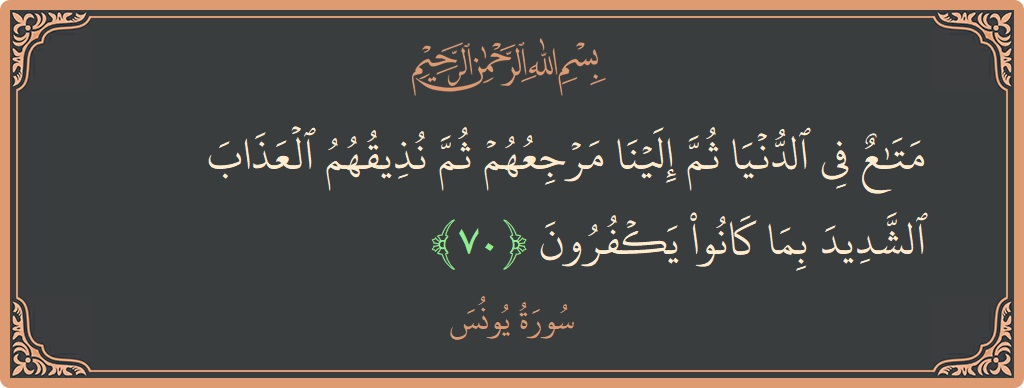 بِسْمِ اللَّهِ الرَّحْمَٰنِ الرَّحِيمِ
مَتَـٰعٌ فِى ٱلدُّنْيَا ثُمَّ إِلَيْنَا مَرْجِعُهُمْ ثُمَّ نُذِيقُهُمُ ٱلْعَذَابَ
ٱلشَّدِيدَ بِمَا كَانُوا۟ يَكْفُرُونَ ﴿٧٠﴾
سُورَةُ يُونُسَ